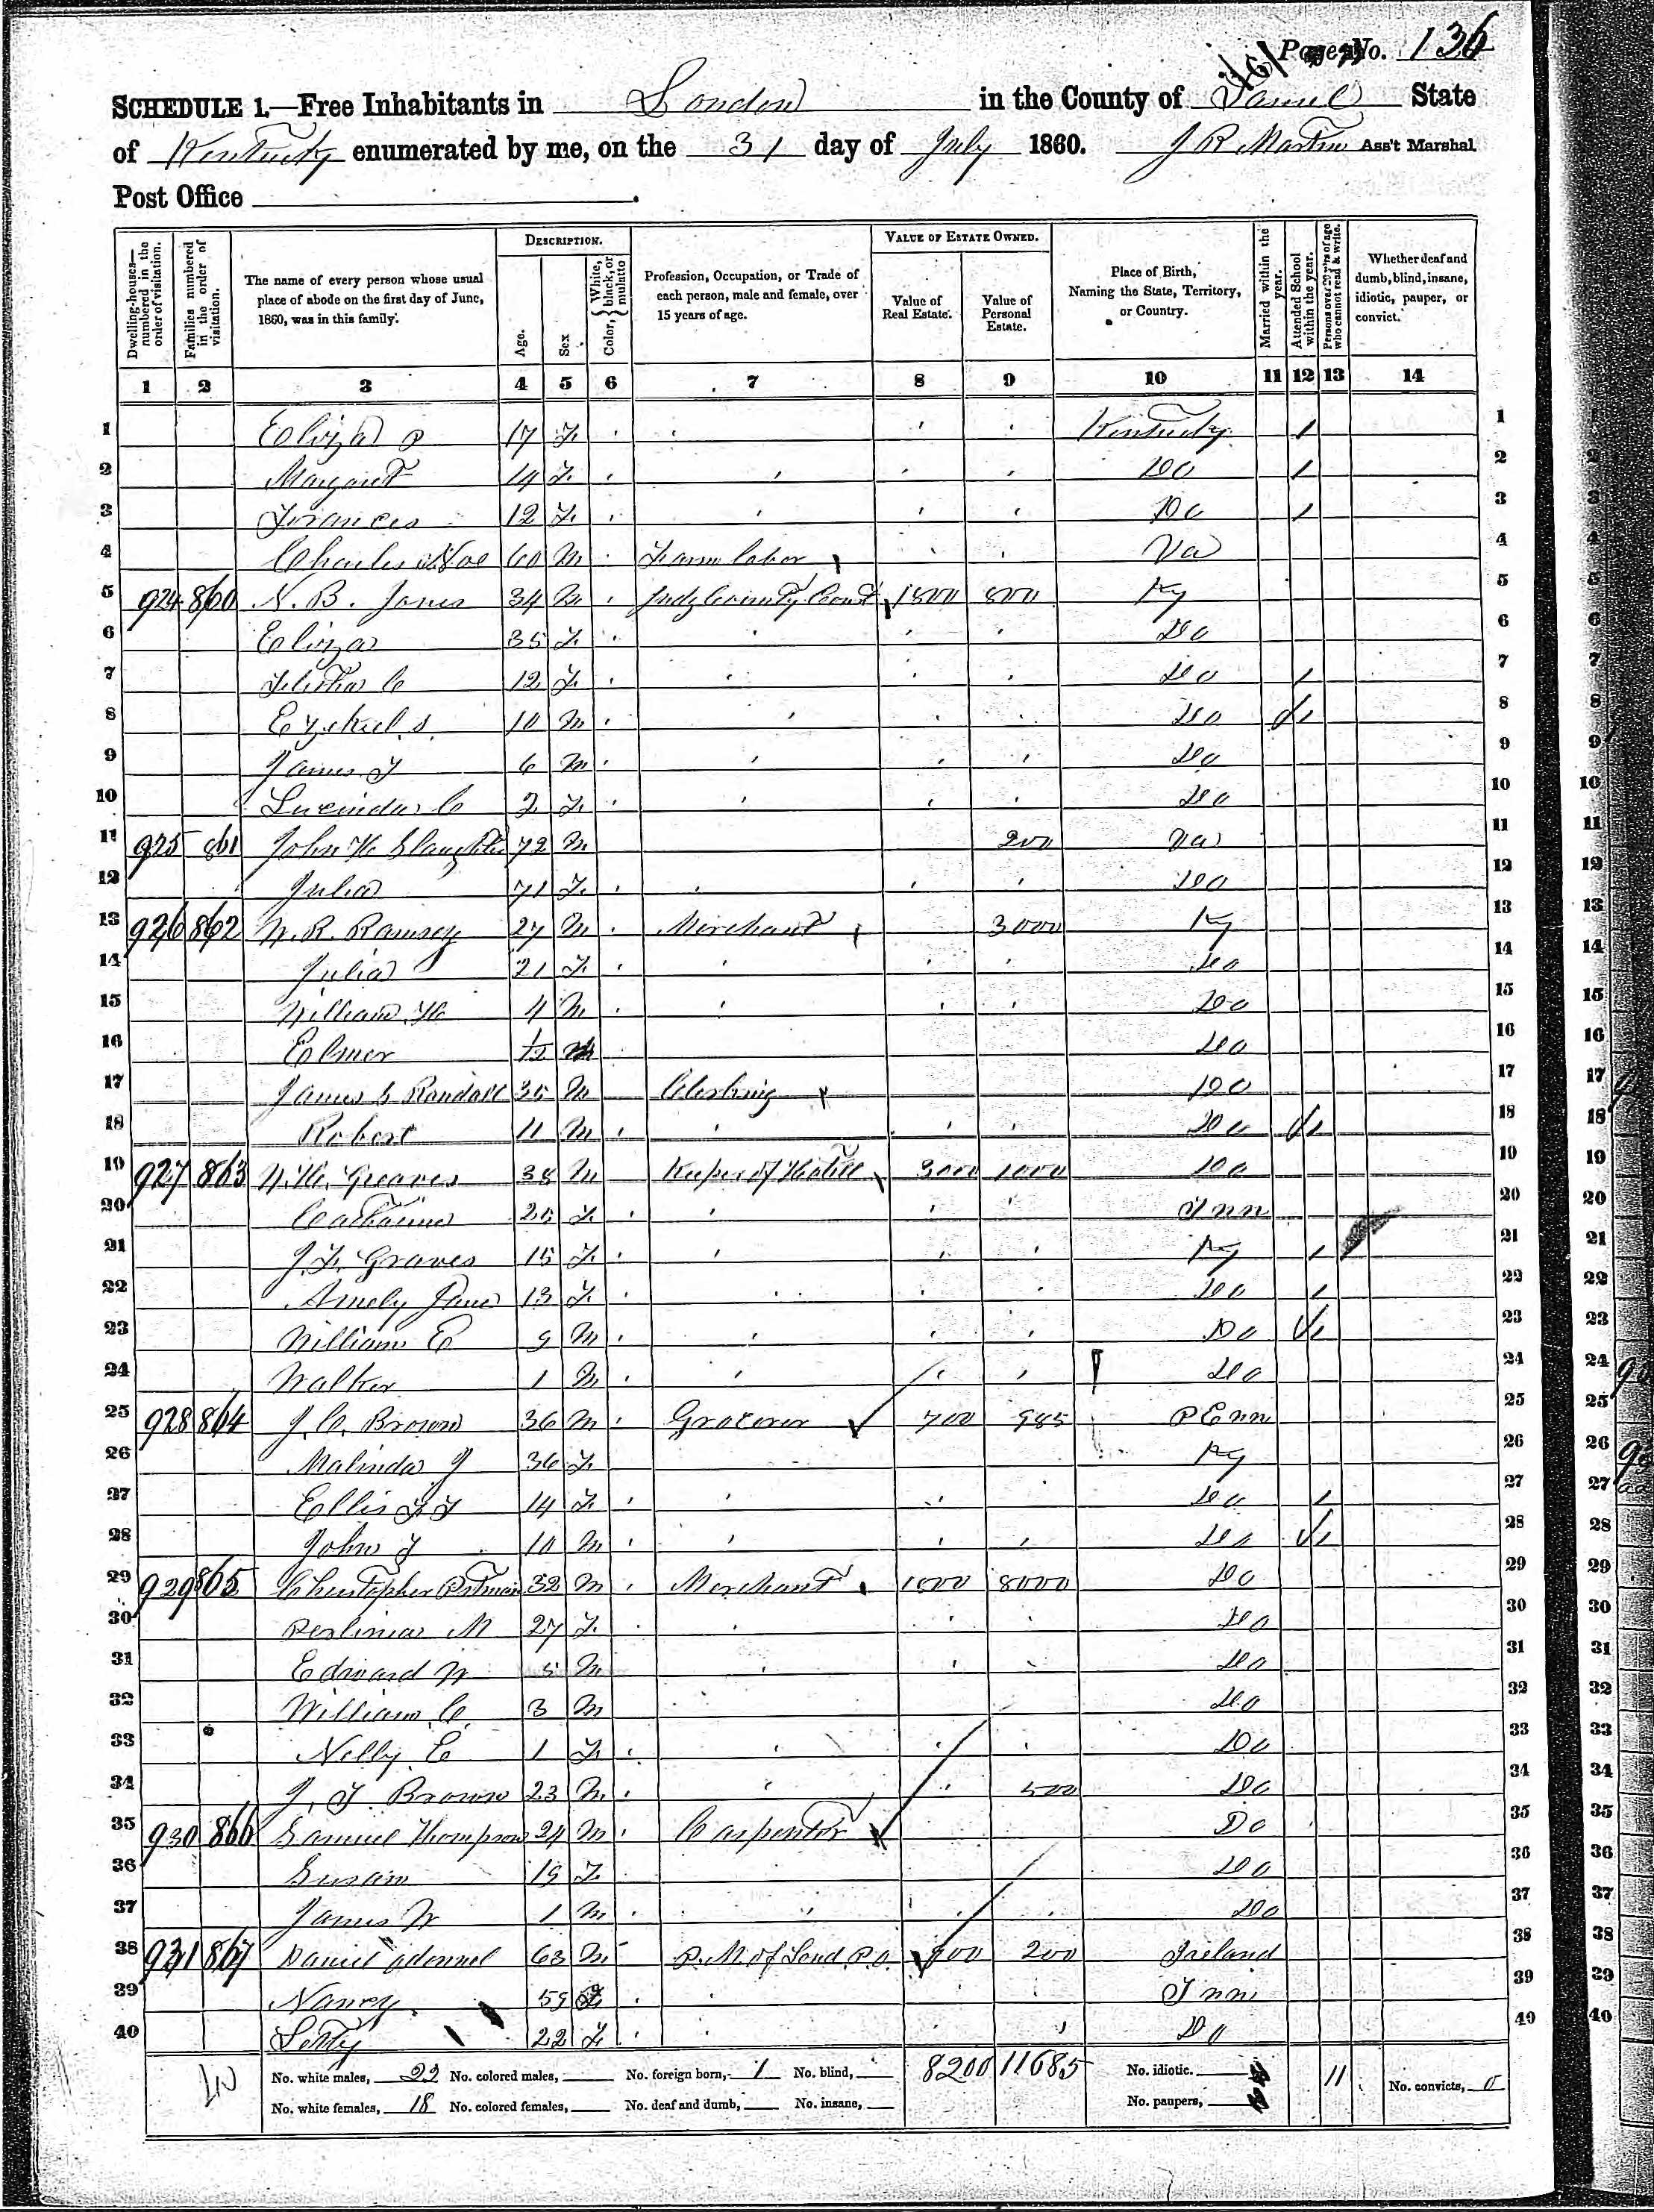 Page No. 136
161
SCHEDULE 1.—Free Inhabitants in London in the County of Laurel State
of Kentucky enumerated by me, on the 31 day of July 1860. J R Martin Ass't Marshal.
Post Office
Dwelling-houses—numbered in the order of visitation.
Families numbered in the order of visitation.
The name of every person whose usual place of abode on the first day of June, 1860, was in this family.
DESCRIPTION.
Age.
Sex
Color, { White, black, or mulatto
Profession, Occupation, or Trade of each person, male and female, over 15 years of age.
VALUE OF ESTATE OWNED.
Value of Real Estate.
Value of Personal Estate.
Place of Birth, Naming the State, Territory, or Country.
Married within the year.
Attended School within the year.
Persons over 20 y'rs of age who cannot read & write.
Whether deaf and dumb, blind, insane, idiotic, pauper, or convict.
1 2 3 4 5 6 7 8 9 10 11 12 13 14
1 Eliza P 17 F Kentucky 1 1
2 Margaret 14 F Do 1 2
3 Frances 12 F Do 1 3
4 Charles 60 M Farm labor Va 4
5 924 860 N. B. Jones 34 M Judg County Court 1800 800 Ky 5
6 Eliza 35 F Do 6
7 C 12 F Do 1 7
8 Ezekiel S. 10 M Do 1 8
9 James T 6 M Do 9
10 Lucinda C 2 F Do 10
11 925 861 John H Slaughter 72 M 200 Va 11
12 Julia 71 F Do 12
13 926 862 W. R. Ramsey 27 M Merchant 3000 Ky 13
14 Julia 21 F Do 14
15 William H 4 M Do 15
16 Elmer M Do 16
17 James S Randall 35 M Clerking Do 17
18 Robert 11 M Do 1 18
19 927 863 W. H. Greaves 38 M Keeper of Hotell 3000 1000 Do 19
20 Catharine 25 F Tnn 20
21 J. F. Graves 15 F Ky 1 21
22 Amely Jane 13 F Do 1 22
23 William E 9 M Do 1 23
24 Walker 1 M Do 24
25 928 864 J. C. Brown 36 M Grocerer 700 985 PEnn 25
26 Malinda J 36 F Ky 26
27 Ellis 14 F Do 1 27
28 John T 10 M Do 1 28
29 929 865 Christopher Pitman 32 M Merchant 1000 8000 Do 29
30 Perlinia M 27 F Do 30
31 Edward W 5 M Do 31
32 William C. 3 M Do 32
33 Nelly E 1 F Do 33
34 J. T. Brown 23 M 500 Do 34
35 930 866 Samuel Thompson 24 M Carpenter Do 35
36 Susan 19 F Do 36
37 James W 1 M Do 37
38 931 867 Daniel Odonnel 63 M P. M of Lond P.O. 200 Ireland 38
39 Nancy 59 F Tnn 39
40 Letty 22 F Do 40
No. white males, 22 No. colored males, No. foreign born, 1 No. blind, 8200 11685 No. idiotic. 11 No. convicts, 0
No. white females, 18 No. colored females, No. deaf and dumb, No. insane, No. paupers,